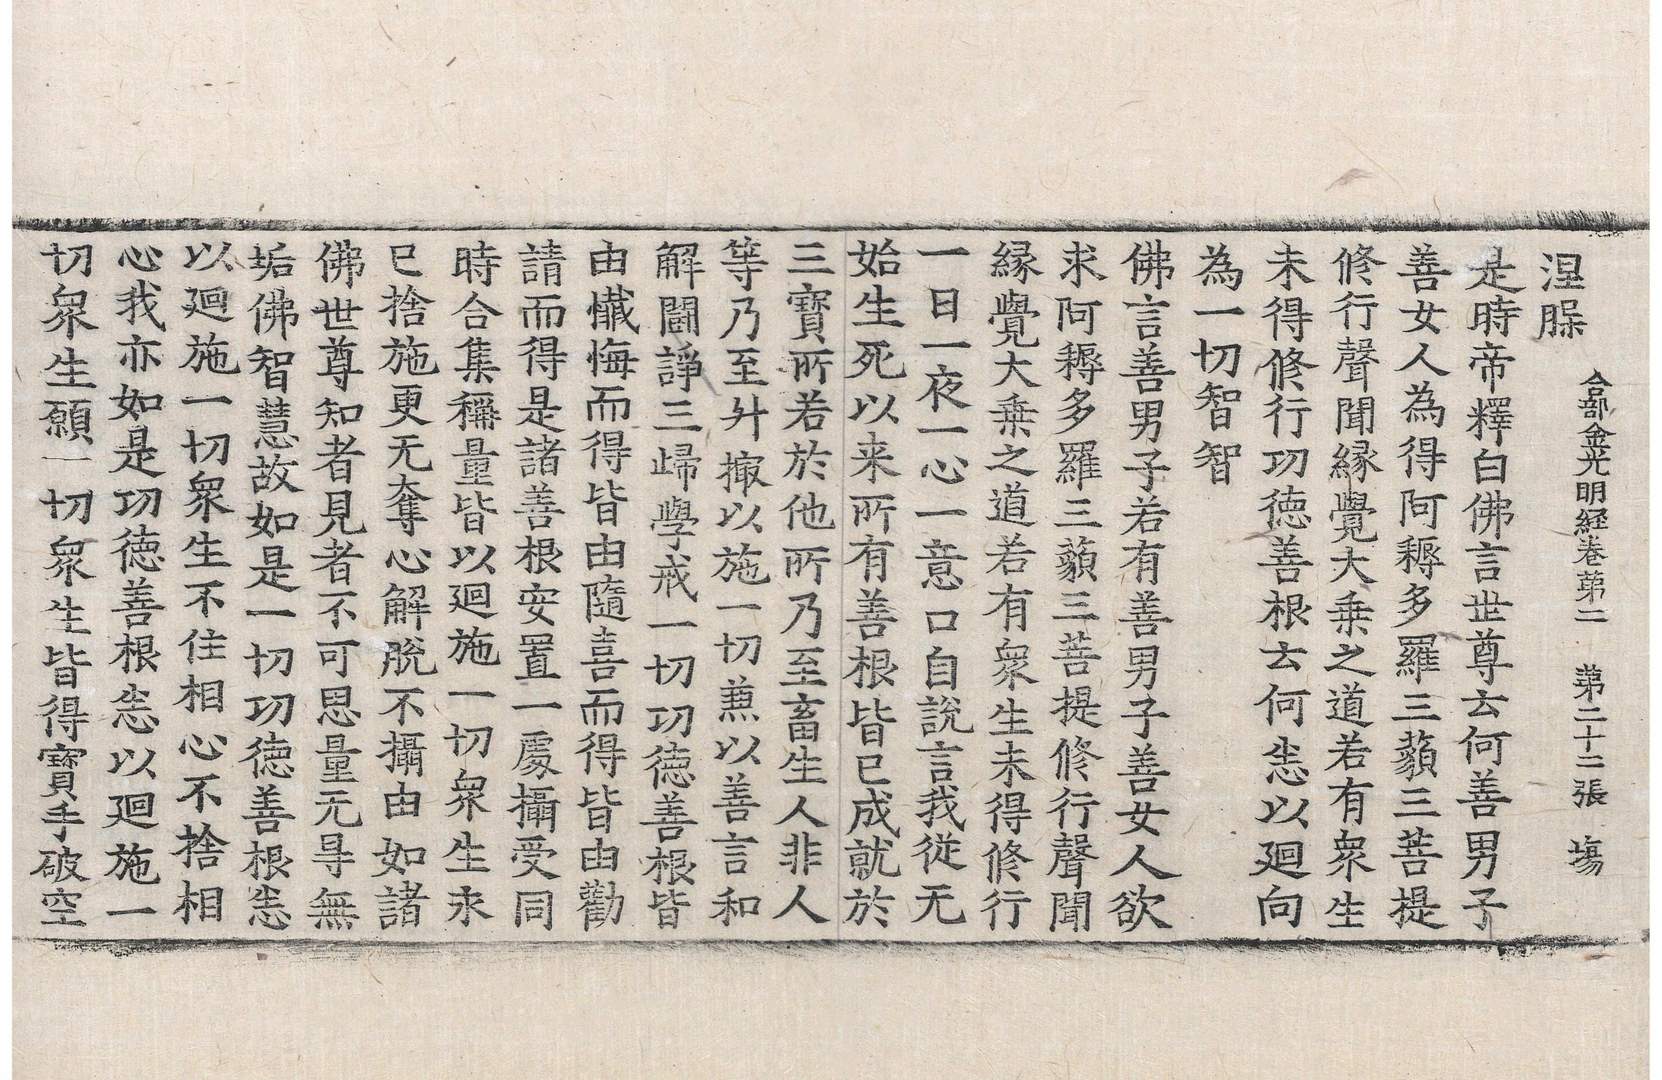 涅槃
合部金光明経卷苐二 苐二十二張 塲
是時帝釋白佛言世尊云何善男子
善女人為得阿耨多羅三藐三菩提
修行聲聞縁覺大乗之道若有衆生
未得修行功德善根云何恙以廻向
為一切智智
佛言善男子若有善男子善女人欲
求阿耨多羅三藐三菩提修行聲聞
縁覺大乗之道若有衆生未得修行
一日一夜一心一意口自説言我従无
始生死以来所有善根皆已成就於
三寶所若於他所乃至畜生人非人
等乃至廾掫以施一切兼以善言和
解闘諍三歸學戒一切功德善根皆
由懺悔而得皆由隨喜而得皆由勸
請而得是諸善根安置一處攝受同
時合集稱量皆以廻施一切衆生永
已捨施更无奪心解脱不攝由如諸
佛世尊知者見者不可思量无㝵無
垢佛智慧故如是一切功德善根恙
以廻施一切衆生不住相心不捨相
心我亦如是功德善根恙以廻施一
切衆生願一切衆生皆得寶手破空